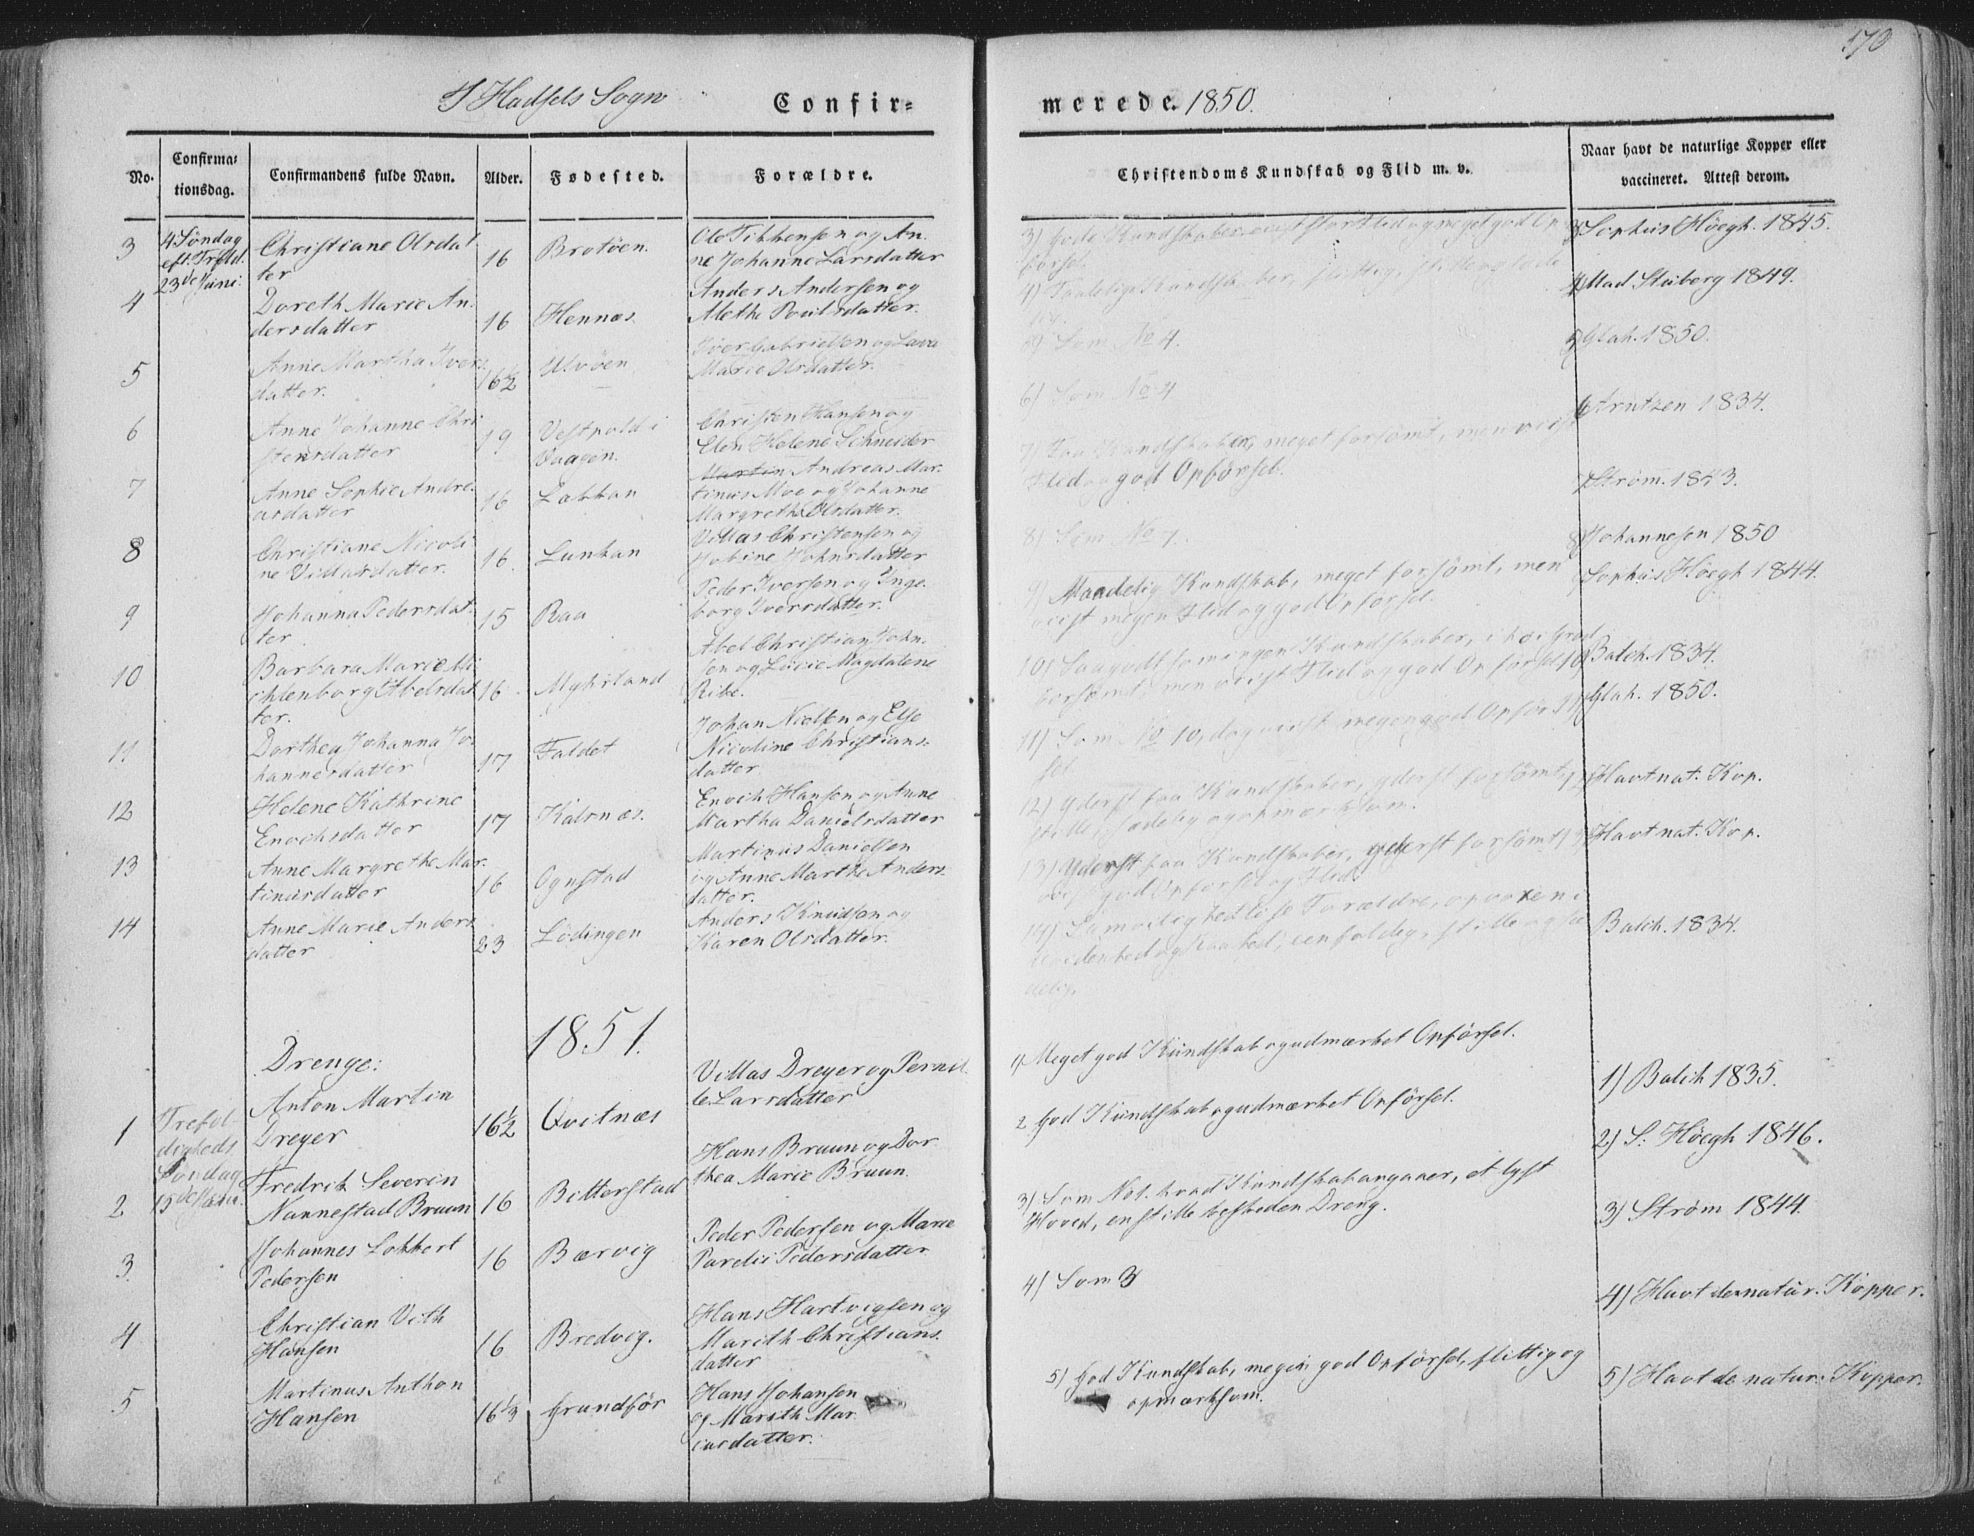 170
I Hadsels Sogn
Confir=
merede. 1850.
No.
Confirma=
tionsdag.
Confirmandens fulde Navn.
Alder.
Fødested.
Forældre.
Christendoms Kundskab og Flid m. v.
Naar havt de naturlige Kopper eller
vaccineret. Attest derom.
3
4. Søndag
eft. Trefol.
23de Juni.
Christiane Olsdat
ter
16
Brotøen.
Ole Tikkensen og An=
ne Johanne Larsdatter
3) Gode Kundskaber, stor Flid og meget god Op
førsel.
Sophus Höegh. 1845.
4
Doreth Marie An=
dersdatter
16
Hennæs.
Anders Andersen og
Methe Poulsdatter.
4) Taalelige Kundskaber, flittig, stille
4) Mad Stuberg 1849.
5
Anne Martha Ivers
datter.
16½
Ulvöen
Iver Gabrielsen og
Marie Olsdatter.
5) Som No 4.
5) Glah. 1850.
6
Anne Johanne Chri
stensdatter
19
Vestpold i
Vaagen.
Christen Hansen og
Elen Helene Schneider
6) Som No 4
6) Arntzen 1834.
7
Anne Sophie Andre=
asdatter
16
Løkkan
Martin Andreas Mar=
tinus Moe og Johanne
Margrethe Olsdatter.
7) Faa Kundskaber, meget forsömt, men viist
Flid og god Opförsel.
7) Ström. 1843.
8
Christiane Nicoli=
ne Villasdatter.
16.
Lunkan
Villas Christensen og
Jobine Johnsdatter
8) Som No 7.
8) Johannesen 1850
9
Johanna Pedersdat=
ter
15
Raa
Peder Iversen og Inge=
borg Iversdatter.
9) Maadelig Kundskab, meget forsömt, men
viist megen Flid og god Opförsel.
Sophus Höegh 1844.
10
Barbara Marie Mi
chlenborg Abelsdat
ter.
16.
Myhrland
Abel Christian John=
sen og Lucie Magdalene
Ribe.
10) Saagodtsom ingen Kundskaber, i höi Grad
forsömt, men viist Flid og god Opförsel
10) Balch. 1834.
11
Dorthea Johanna Jo=
hannesdatter
17
Faldet
Johan Nielsen og Else
Nicoline Christians=
datter
11) Som No 10, dog viist megen god Opför
sel
11) Glah. 1850.
12
Helene Kathrine
Enochsdatter
17
Kalsnæs.
Enoch Hansen og Anne
Martha Danielsdatter
12) Yderst faa Kundskaber, yderst forsömt,
stille, sædelig og opmærksom.
12) Havt nat. Kop.
13
Anne Margrethe Mar=
tinusdatter
16
Ognstad
Martinus Danielsen
og Anne Marthe Anders=
datter.
13) Yderst faa Kundskaber, yderst forsömt
viist god Opförsel og Flid.
13) Havt nat. Kop.
14
Anne Marie Anders
datter
23
Lödingen
Anders Knudsen og
Karen Olsdatter.
14) Samvittighedslöse Forældre, opvoxen i
Uvidenhed og Raahed, eenfoldig, stille og sæ
delig.
Balch. 1834.
1851.
Drenge:
1
Trefol=
digheds
Søndag
15de Juni.
Anton Martin
Dreyer
16½
Qvitnæs
Villas Dreyer og Pernil
le Larsdatter
1) Meget god Kundskab og udmærket Opförsel.
1) Balch 1835.
2
Fredrik Severin
Nannestad Bruun
16
Bitterstad
Hans Bruun og Dor
thea Marie Bruun.
2 God Kundskab og udmærket Opförsel.
2) S. Höegh 1846.
3.
Johannes Lokkert
Pedersen
16
Bærvig
Peder Pedersen og Marie
Pardii Pedersdatter.
3) Som No 1. hvad Kundskab angaaer, et lyst
Hoved, en stille beskeden Dreng.
3) Ström 1844.
4
Christian Vith
Hansen
16
Bredvig.
Hans Hartvigsen og
Marith Christians=
datter
4) Som 3
4) Havt de natur. Kopper.
5
Martinus Anthon
Hansen
16⅓
Grundför
Hans Johansen
og Marith Mar
iusdatter.
5) God Kundskab, megen god Opförsel, flittig og
opmærksom.
5) Havt de natur. Kopper.